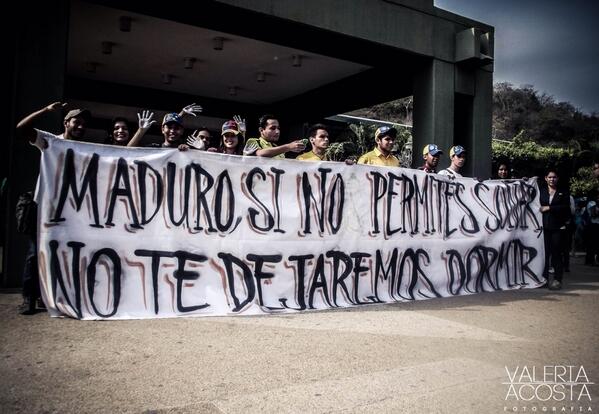 MADURO, SI NO PERMITES SOÑAR,
NO TE DEJAREMOS DORMIR
VALERIA
ACOSTA
FOTOGRAFIA